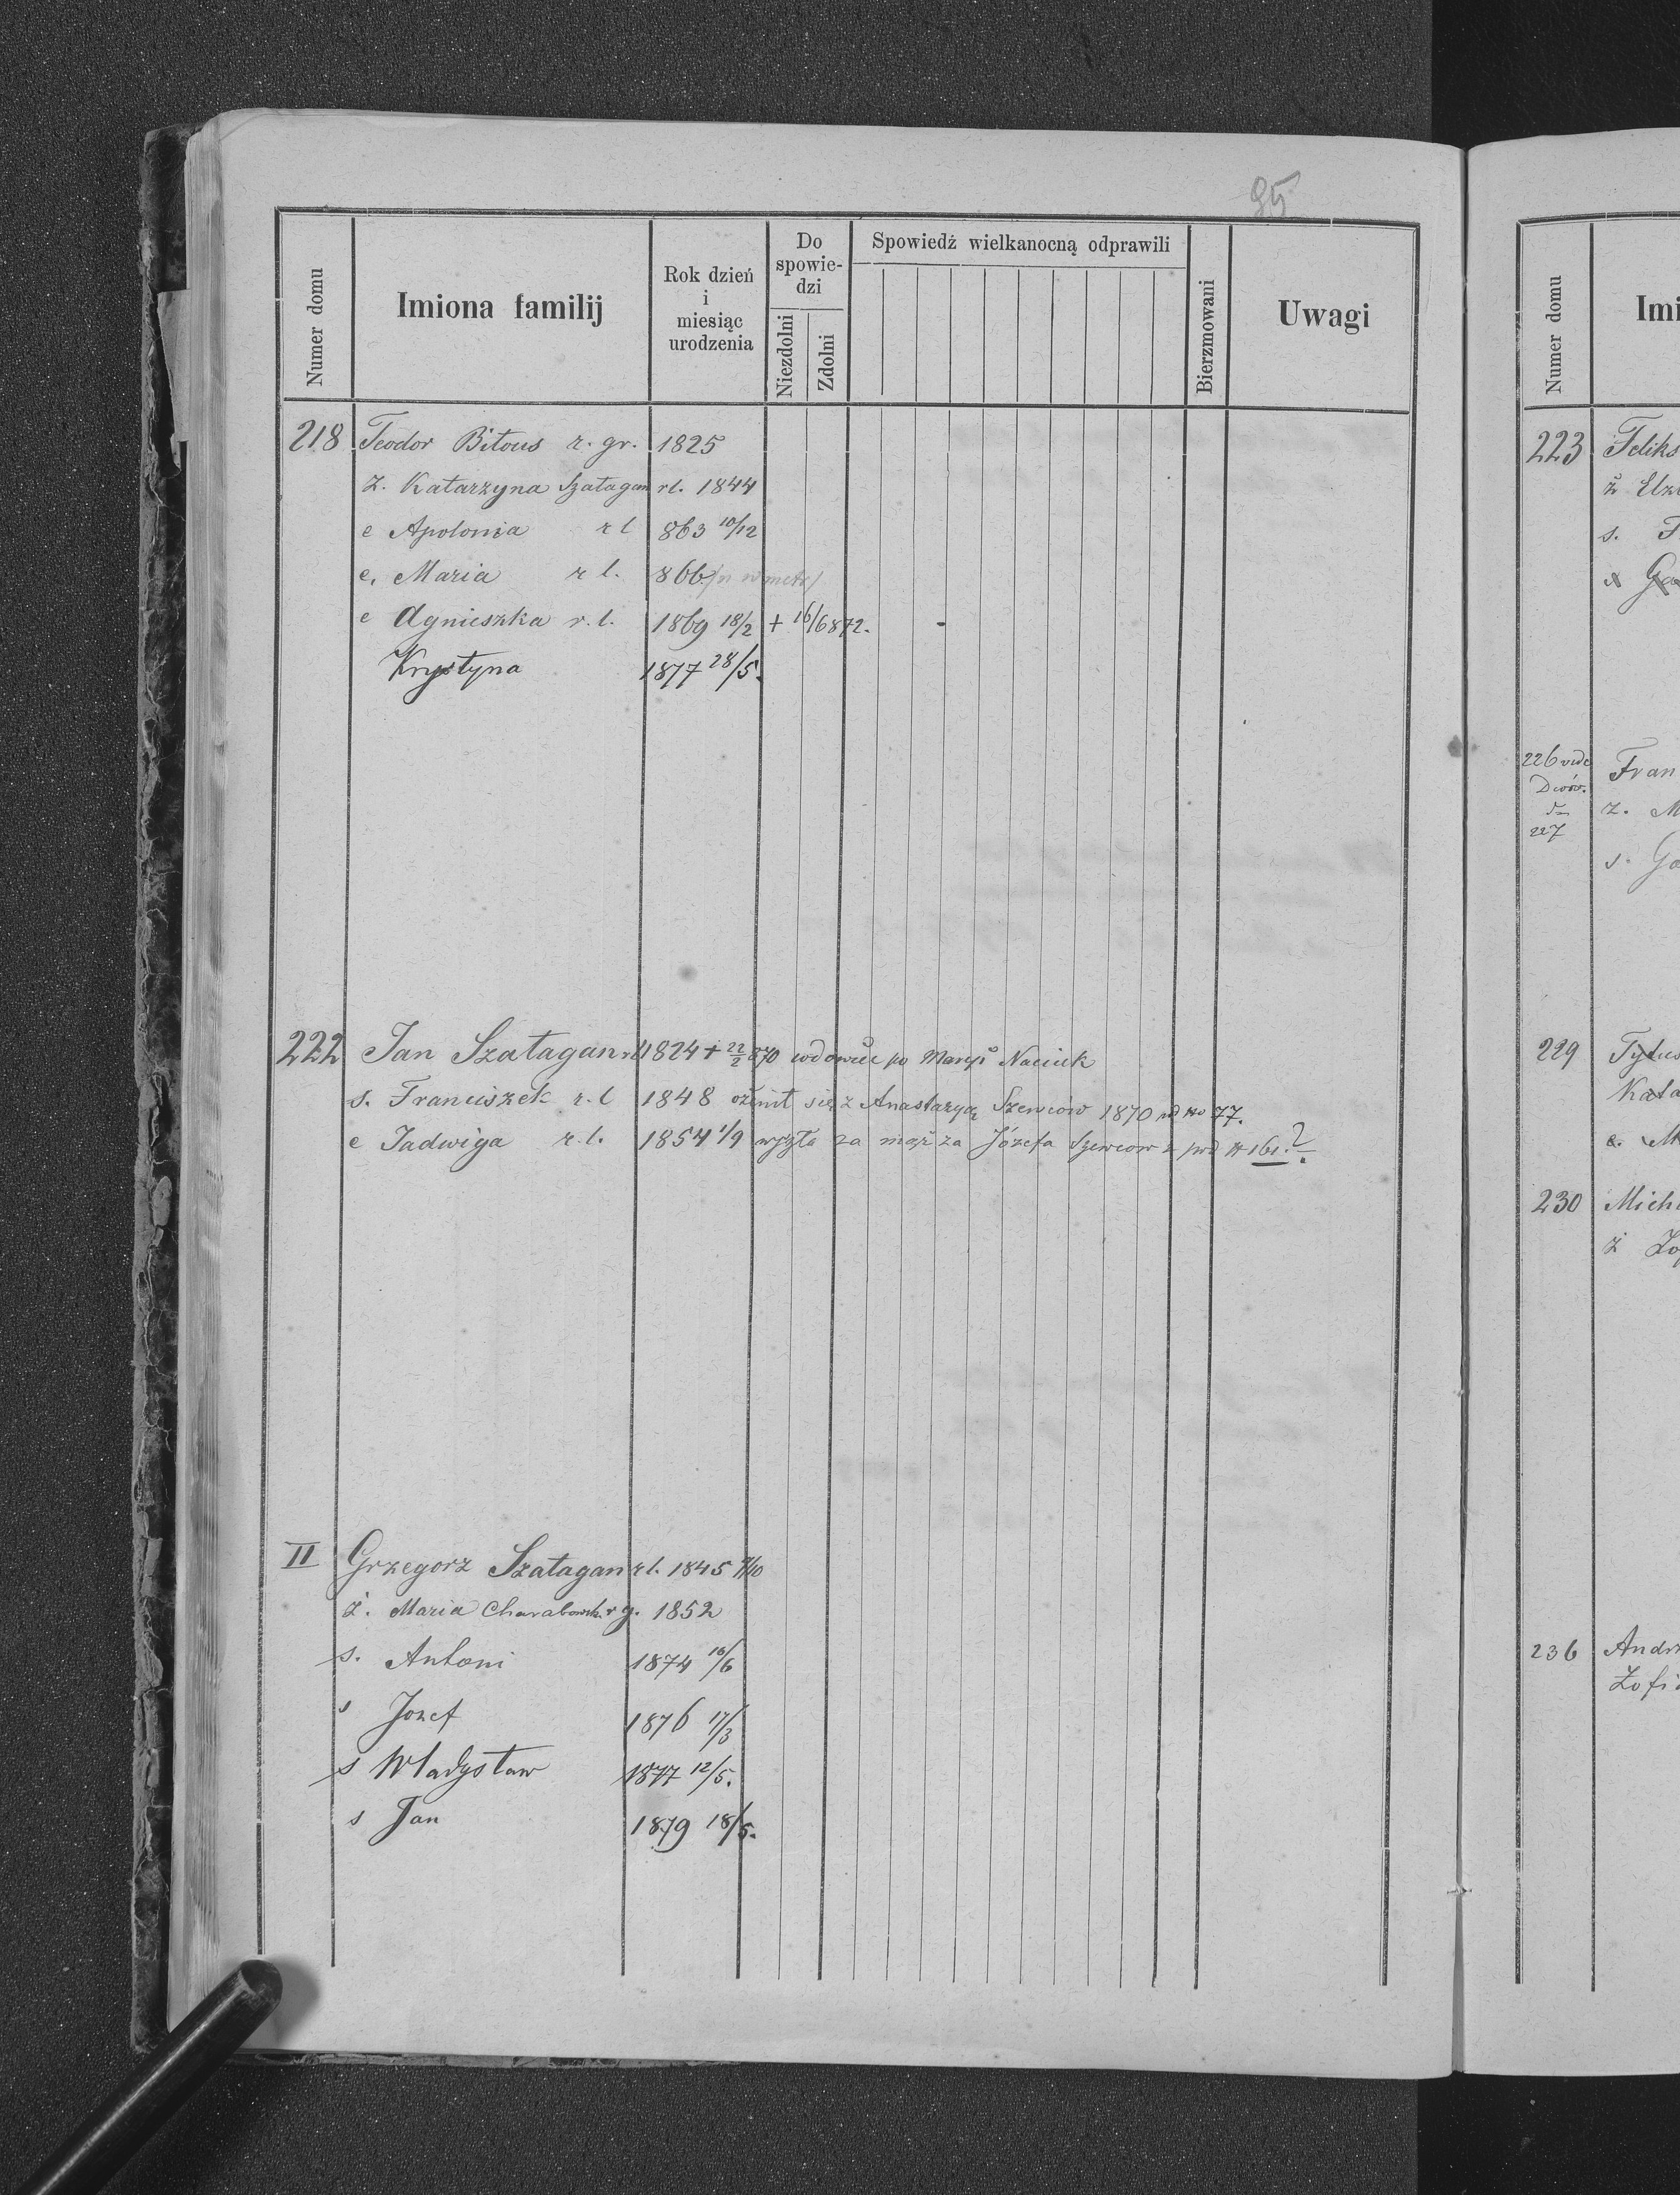 95
Numer domu
Imiona familij
Rok dzień i miesiąc urodzenia
Do spowiedzi
Niezdolni
Zdolni
Spowiedź wielkanocną odprawili
Bierzmowani
Uwagi
218 Teodor Bitous r. gr. 1825
ż. Katarzyna Szałagan rł. 1844
c Apolonia r ł 863 10/12
c. Maria r ł. 866 /n w metr/
c Agnieszka r. ł. 1869 18/2 + 16/6 872.
Krystyna 1877 28/5.
222 Jan Szałagan rł 1824 + 22/2 870 wdowiec po Maryi Naciuk
s. Franciszek r. ł 1848 ożenił się z Anastazyą Szewców 1870 77.
c Jadwiga r. ł. 1854 1/9 wyszła za mąż za Józefa Szewców z pod N 161. ?
II Grzegorz Szałagan rł. 1845 /10
ż. Maria r g. 1852
s. Antoni 1874 16/6
s Jozef 1876 17/3
s Władysław 1877 12/5.
s Jan 1879 18/5.
Numer domu
Imi
223 Feliks
ż Elż
s.
226 vide
227
Fran
ż. M
s. Ga
229 Tytus
Kata
c. M
230 Mich
ż Zo
236 Andr
Zofi